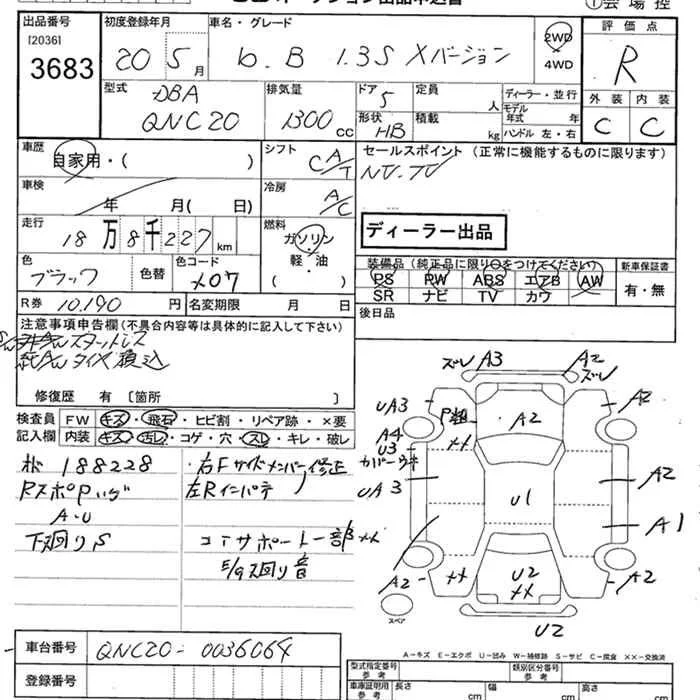 出品番号
[2036]
3683
初度登録年月
20 5月
車名・グレード
b.B 1.3S Xバージョン
2WD
4WD
評価点
R
外装 内装
C C
型式
DBA
QNC20
排気量
1300cc
ドア
5
形状
HB
定員
人
積載
kg
ディーラー・並行
モデル年式 年
ハンドル 左・右
車歴
自家用・( )
シフト
CA/T
セールスポイント(正常に機能するものに限ります)
NV.TV
車検
年 月( 日)
冷房
A/C
走行
18万8千227km
燃料
ガソリン
軽・油
( ・ )
ディーラー出品
装備品(純正品に限り○をつけてください)
PS RW ABS エアB AW
SR ナビ TV カワ
新車保証書
有・無
色
ブラック
色替
色コード
X07
R券 10.190円
名変期限 月 日
後日品
注意事項申告欄(不具合内容等は具体的に記入して下さい)
修復歴 有〔箇所 〕
検査員
記入欄
FW キズ・飛石・ヒビ割・リペア跡・×要
内装 キズ・汚レ・コゲ・穴・スレ・キレ・破レ
188228
・右Fサイドメンバー修正
左Rインパテ
A・U
下廻りS
コアサポート一部××
E/g廻り音
ズレ A3
A2
ズレ
UA3
P粗
××
A2
A2
A4
U3
カバーウキ
UA3
U1
A2
A1
A2
××
U2
××
A2
スペア
U2
A-キズ E-エクボ U-凹み W-補修跡 S-サビ C-腐食 ××-交換済
車台番号
QNC20-0036064
登録番号
型式指定番号
参考
類別区分番号
参考
車庫証明用
参考
長さ cm
幅 cm
高さ cm